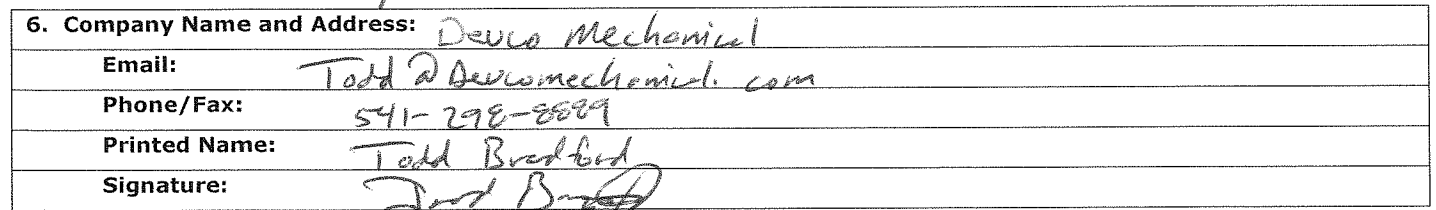 6. Company Name and Address: Devco Mechanical
Email: Todd @ Devcomechanical. com
Phone/Fax: 541-298-8889
Printed Name: Todd Bradford
Signature: Todd